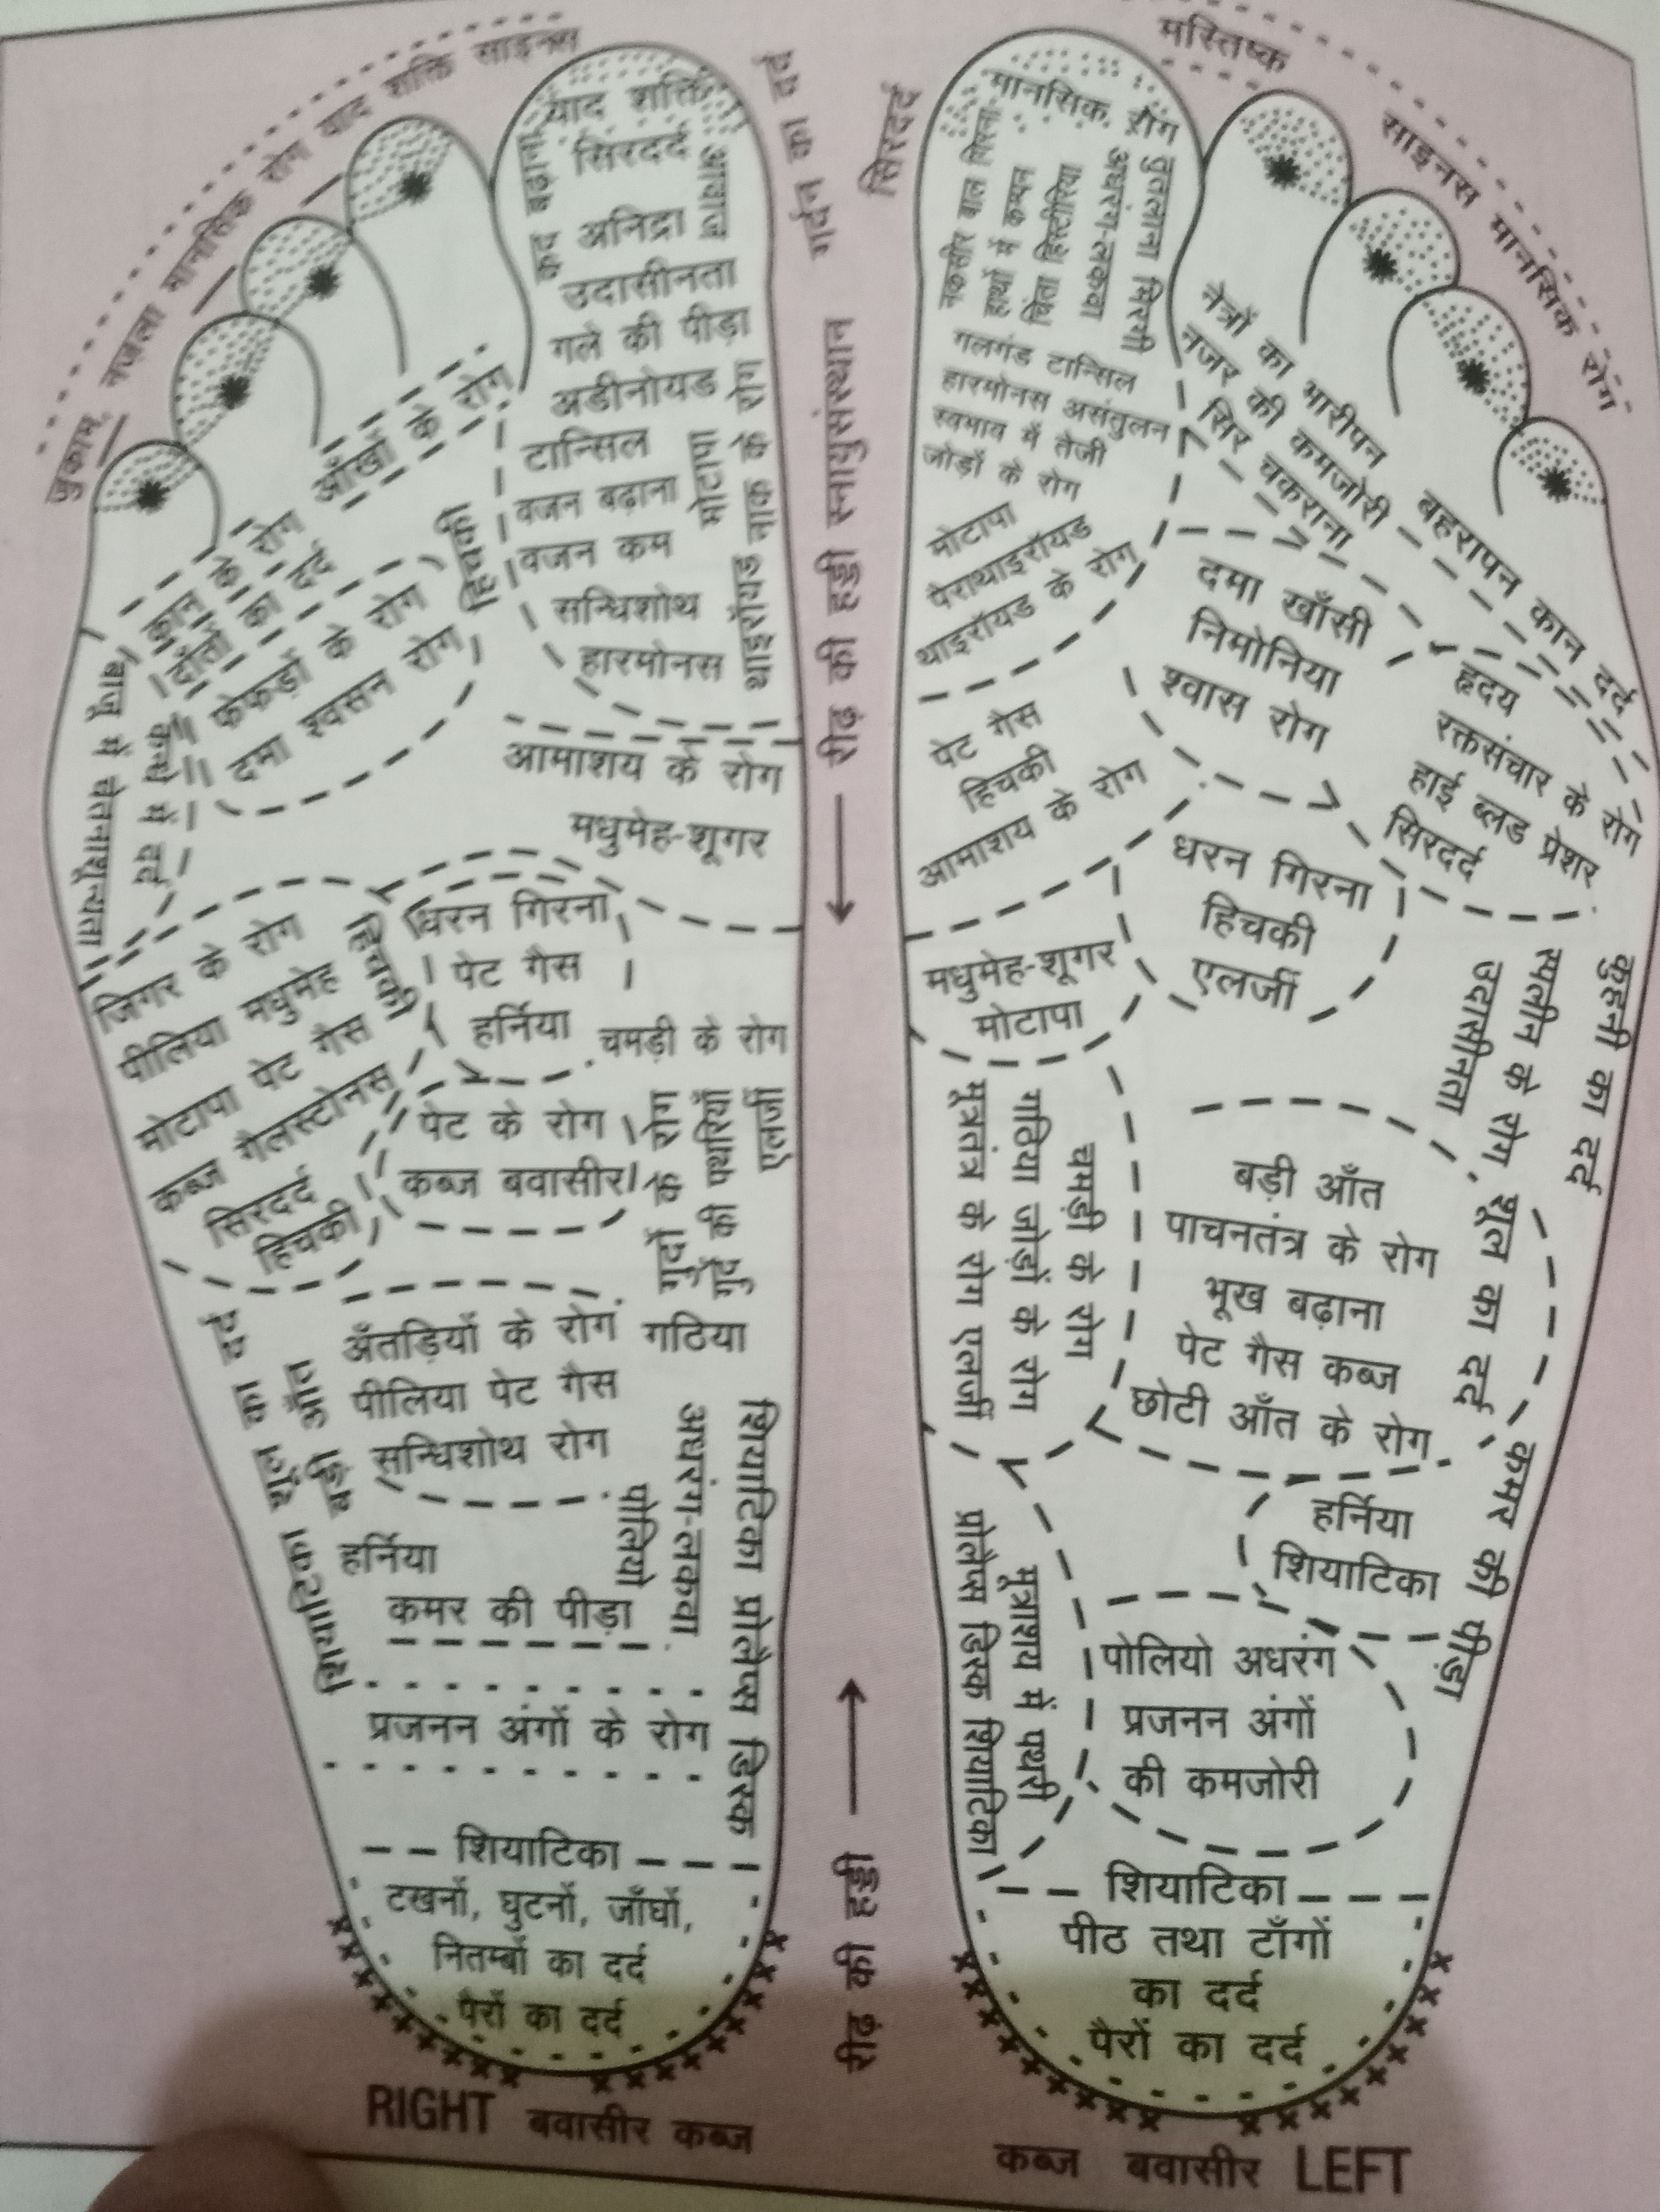 जुकाम नज़ला मानसिक रोग याद शक्ति साइनस
याद शक्ति
सिरदर्द
अनिद्रा
उदासीनता
गले की पीड़ा
अडीनोयड
टान्सिल
वजन बढ़ाना
वजन कम
सन्धिशोथ
हारमोनस
कद बढ़ाना
आवाज
मोटापा
थाइरॉयड नाक के रोग
गर्दन का दर्द
आँखों के रोग
कान के रोग
दाँतों का दर्द
हिचकी
फेफड़ों के रोग
दमा श्वसन रोग
कन्धे में दर्द
बाजू में चेतनाशून्यता
आमाशय के रोग
मधुमेह-शूगर
जिगर के रोग
पीलिया मधुमेह
मोटापा पेट गैस
कब्ज गैलस्टोनस
सिरदर्द
हिचकी
हिचकी
धरन गिरना
पेट गैस
हर्निया
चमड़ी के रोग
पेट के रोग
कब्ज बवासीर
गुर्दों के रोग
गुर्दे की पथरियाँ
एलर्जी
अँतड़ियों के रोग
गठिया
पीलिया पेट गैस
सन्धिशोथ रोग
हर्निया
कमर की पीड़ा
पोलियो
अधरंग-लकवा
शियाटिका प्रोलेप्स डिस्क
प्रजनन अंगों के रोग
शियाटिका
टखनों, घुटनों, जाँघों,
नितम्बों का दर्द
पैरों का दर्द
RIGHT बवासीर कब्ज
रीढ़ की हड्डी स्नायुसंस्थान
रीढ़ की हड्डी
सिरदर्द
मस्तिष्क
साइनस मानसिक रोग
मानसिक रोग
तुतलाना मिरगी
अधरंग-लकवा
हाथों में कम्पन
गलगंड टान्सिल
हारमोनस असंतुलन
स्वभाव में तेजी
जोड़ों के रोग
मोटापा
पैराथाइरॉयड
थाइरॉयड के रोग
नेत्रों का भारीपन
नजर की कमजोरी
सिर चकराना
बहरापन कान दर्द
दमा खाँसी
निमोनिया
श्वास रोग
हृदय
रक्तसंचार के रोग
हाई ब्लड प्रेशर
सिरदर्द
पेट गैस
हिचकी
आमाशय के रोग
धरन गिरना
हिचकी
एलर्जी
मधुमेह-शूगर
मोटापा
कुहनी का दर्द
स्पलीन के रोग
उदासीनता
शूल का दर्द
चमड़ी के रोग
गठिया जोड़ों के रोग
मूत्रतंत्र के रोग एलर्जी
बड़ी आँत
पाचनतंत्र के रोग
भूख बढ़ाना
पेट गैस कब्ज
छोटी आँत के रोग
कमर की पीड़ा
हर्निया
शियाटिका
मूत्राशय में पथरी
प्रोलेप्स डिस्क शियाटिका
पोलियो अधरंग
प्रजनन अंगों
की कमजोरी
शियाटिका
पीठ तथा टाँगों
का दर्द
पैरों का दर्द
कब्ज बवासीर LEFT